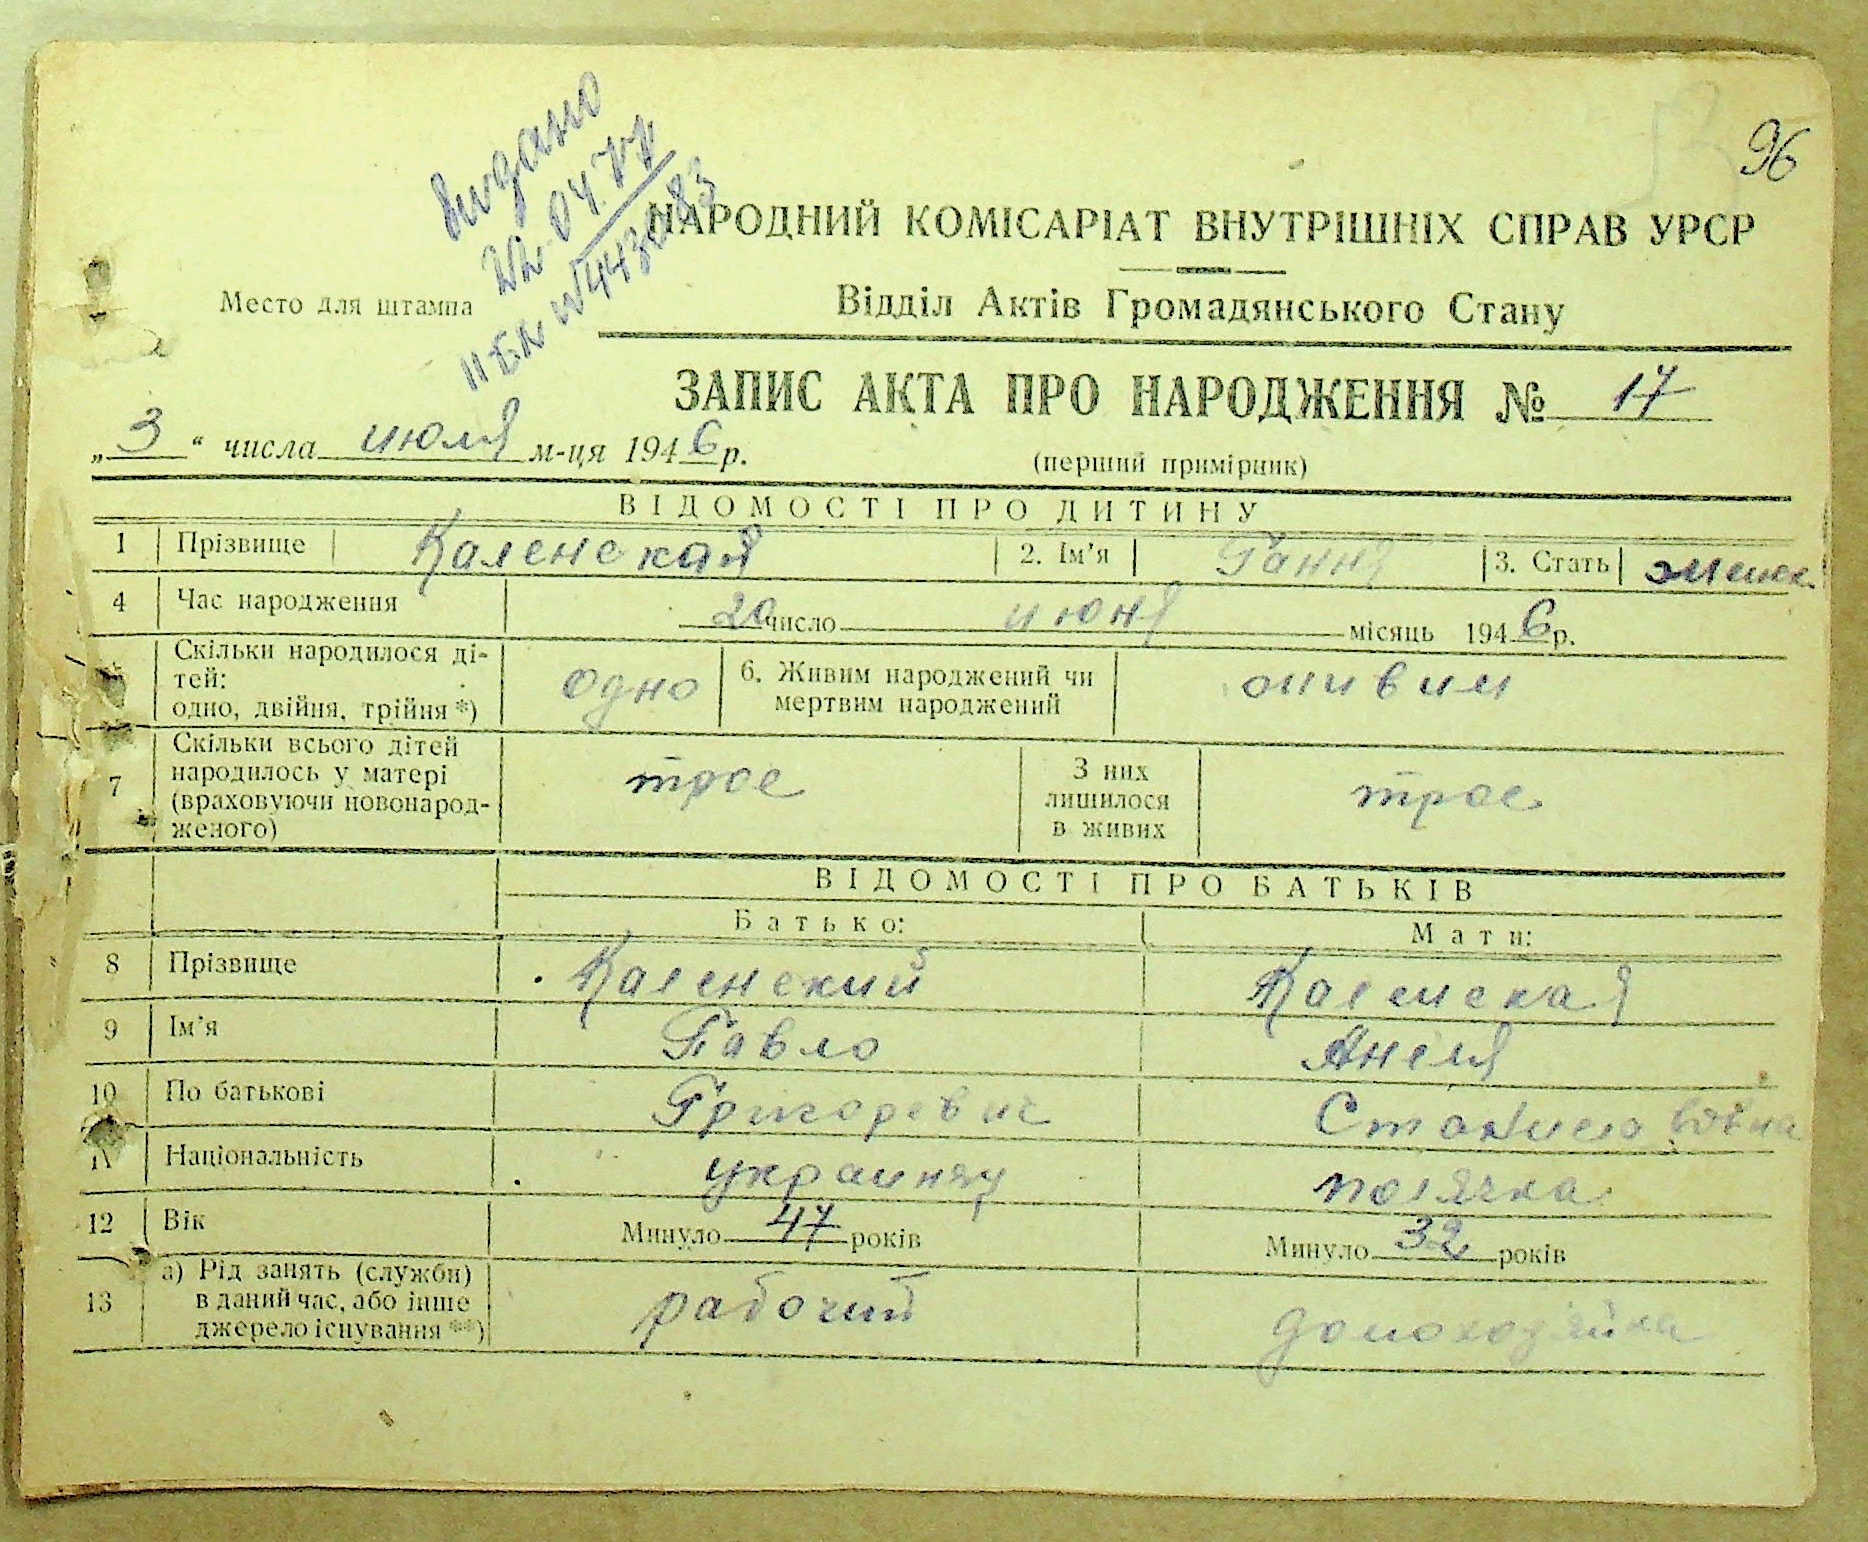 96
видано
22.04.77
НАРОДНИЙ КОМІСАРІАТ ВНУТРІШНІХ СПРАВ УРСР
Место для штампа
Відділ Актів Громадянського Стану
ЗАПИС АКТА ПРО НАРОДЖЕННЯ № 17
„3“ числа июля м-ця 1946 р.
(перший примірник)
ВІДОМОСТІ ПРО ДИТИНУ
1 Прізвище Каленская 2. Ім'я Ганна 3. Стать женск.
4 Час народження 20 число июня місяць 1946 р.
Скільки народилося ді-
тей:
одно, двійня, трійня *) одно 6. Живим народжений чи
мертвим народжений живим
7 Скільки всього дітей
народилось у матері
(враховуючи новонарод-
женого) трое З них
лишилося
в живих трое
ВІДОМОСТІ ПРО БАТЬКІВ
Батько: Мати:
8 Прізвище Каленский Каленская
9 Ім'я Павло Анеля
10 По батькові Григоревич Станиславовна
11 Національність украинец полячка
12 Вік Минуло 47 років Минуло 32 років
13 а) Рід занять (служби)
в даний час, або інше
джерело існування **) рабочий домохозяйка